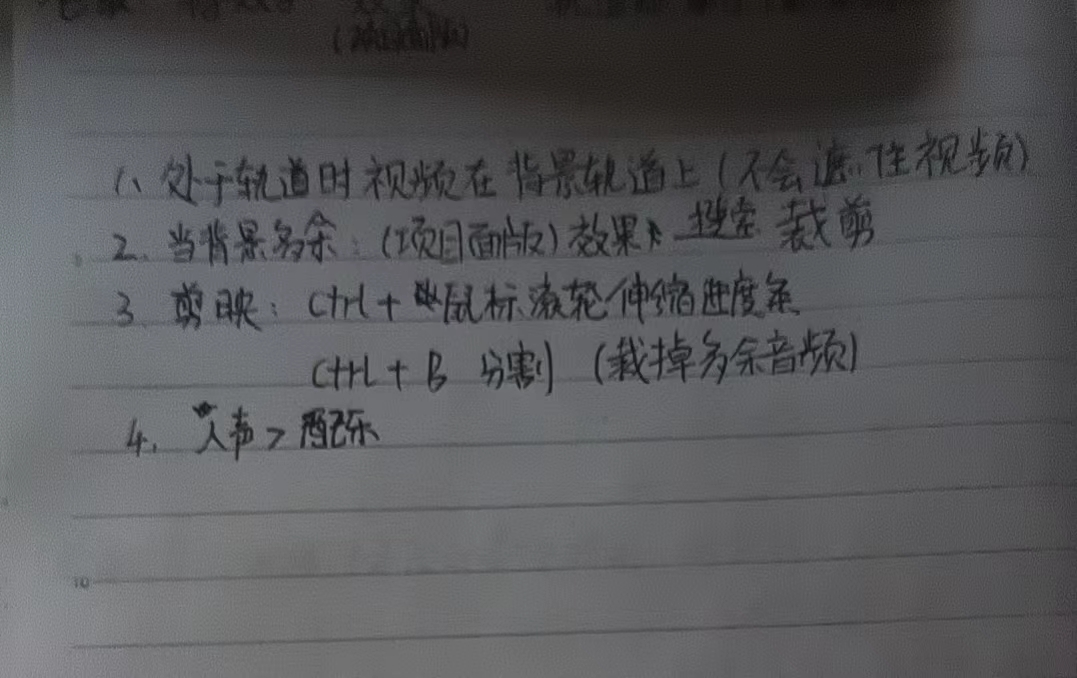 (项目面版)
1、处于轨道时视频在背景轨道上(不会遮住视频)
2、当背景多余:(项目面版)效果 搜索 裁剪
3、剪映: Ctrl + 鼠标滚轮伸缩进度条
Ctrl + B 分割 (裁掉多余音频)
4、人声 > 配乐
10